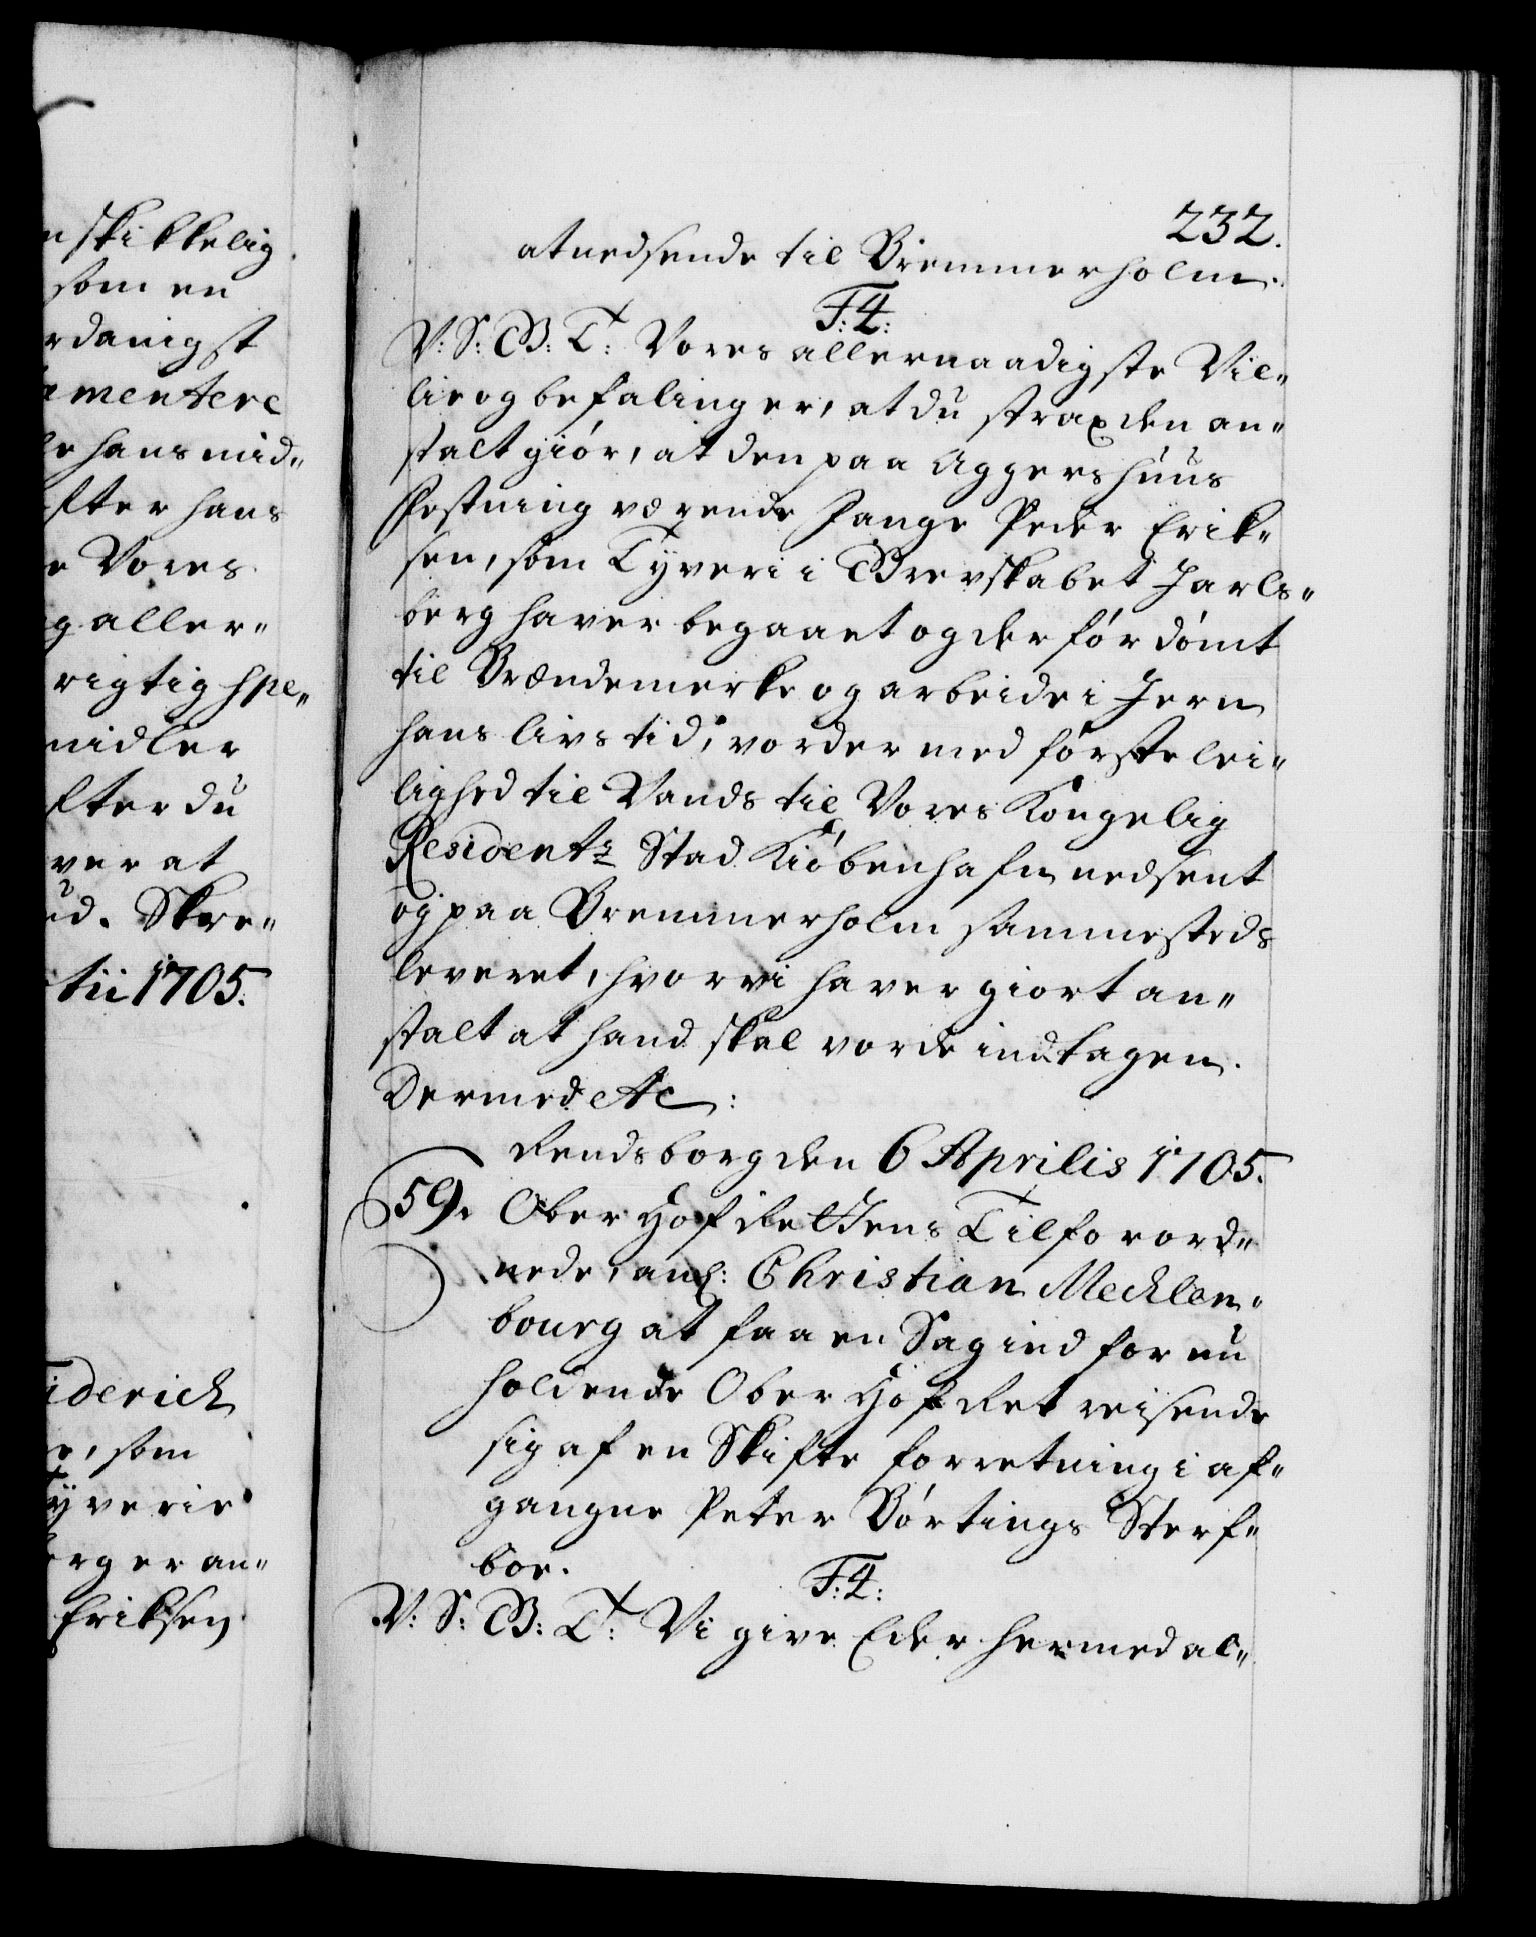 n skikkelig
som en
rdanigst
menterc
le hans mid„
fter hans
e Vores
g aller„
rigtig spe„
midler
fter du
ver at
ud. Skre„
tii 1705.
iderich
e, som
yverie
erg er an„
Eriksen
232.
at nedsende til Bremmerholm.
F: 4:
V: S: G: T: Vores allernaadigste Vil„
lie og befalinger, at du strax den an„
stalt giör, at den paa Aggershuus
Festning værende Fange Peder Erik„
sen, som Tyveri i Grevskabet Jarls„
berg haver begaaet og derfor dömt
til Brændemerke og arbeide i Jern
hans livs tid, vorder med förste lei„
lighed til Vands til Vores Kongelig
Residentz Stad Kiöbenhafn nedsent
og paa Bremmerholm sammesteds
leveret, hvor vi haver giort an„
stalt at hand skal vorde indtagen.
Dermed etc:
Rendsborg den 6 Aprilis 1705.
59. Ober Hof Rettens Tilforord„
nede, anl: Christian Mecklen„
bourg at faa en Sag ind for nu
holdende Ober Hof Ret reisende
sig af en Skifte forretning i af„
gangne Peter Börtings Sterf„
boe.
F: 4:
V: S: G: T: Vi give Eder hermed al„